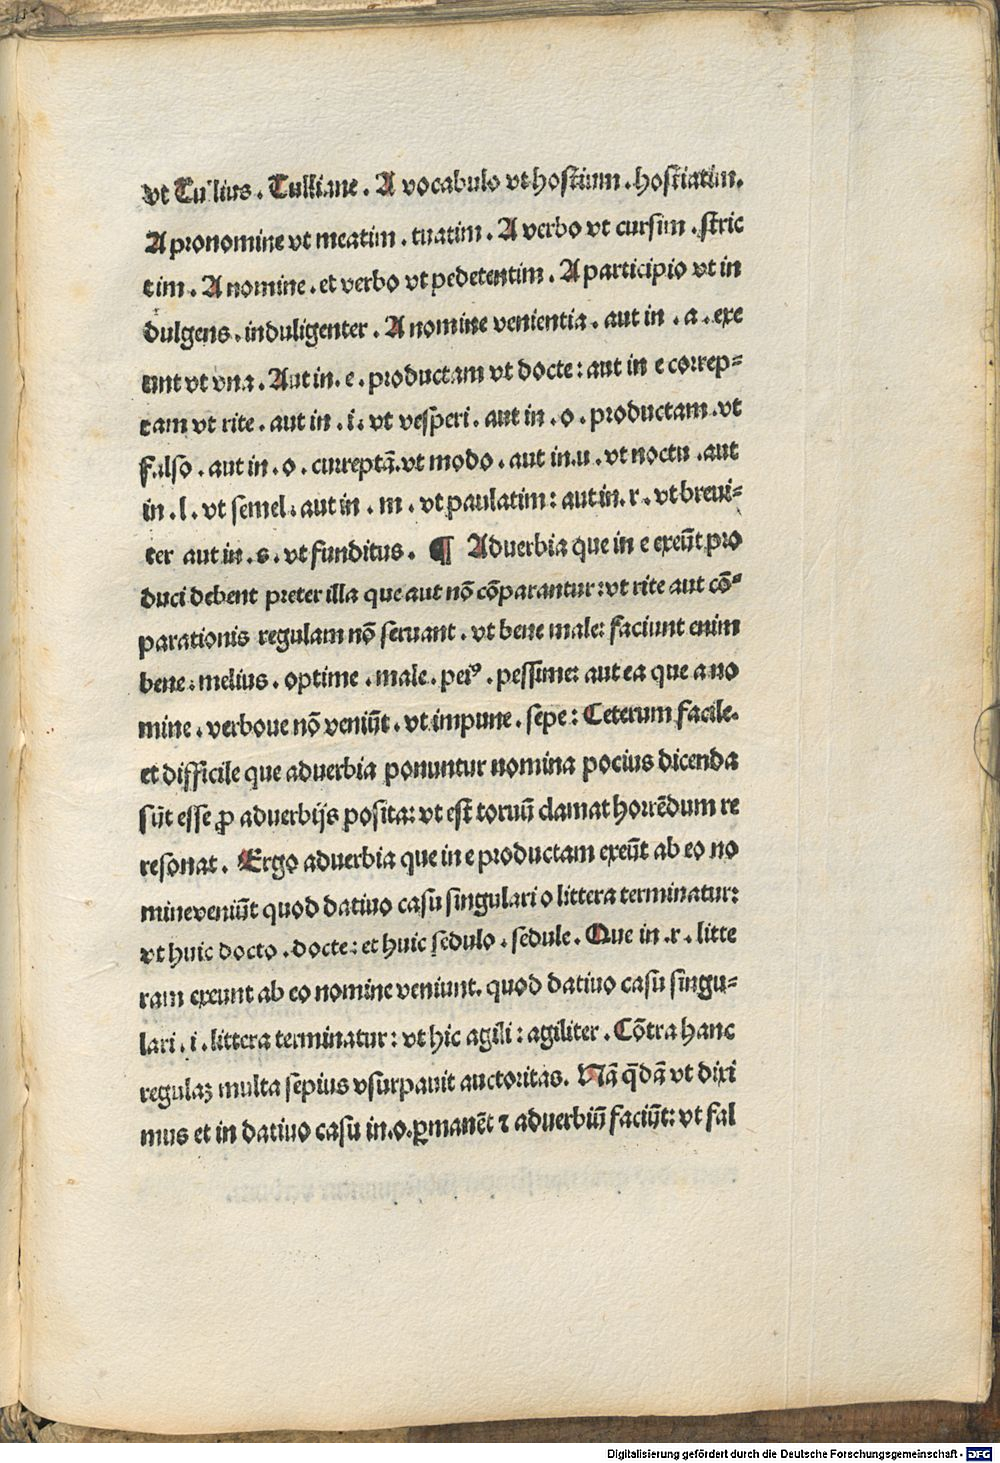 vt Tullius . Tulliane . A vocabulo vt hostium . hostiatim.
A pronomine vt meatim . tuatim . A verbo vt cursim . stric
tim . A nomine . et verbo vt pedetentim . A participio vt in
dulgens . induligenter . A nomine venientia . aut in . a . exe
unt vt vna . Aut in . e . productam vt docte : aut in e correp-
tam vt rite . aut in . i . vt vesperi . aut in . o . productam . vt
falso . aut in . o . curreptā . vt modo . aut in . u . vt noctu . aut
in . l . vt semel . aut in . m . vt paulatim : aut in . r . vt breui-
ter aut in . s . vt funditus . ¶ Aduerbia que in e exeūt pro
duci debent preter illa que aut nō cōparantur : vt rite aut cō-
parationis regulam nō seruant . vt bene male : faciunt enim
bene : melius . optime . male . peiꝰ . pessime : aut ea que a no
mine . verboue nō veniūt . vt impune . sepe : Ceterum facile.
et difficile que aduerbia ponuntur nomina pocius dicenda
sūt esse ꝓ aduerbijs posita : vt est toruū clamat horrēdum re
resonat . Ergo aduerbia que in e productam exeūt ab eo no
mine veniūt quod datiuo casu singulari o littera terminatur :
vt huic docto . docte : et huic sedulo . sedule . Que in . r . litte
ram exeunt ab eo nomine veniunt . quod datiuo casu singu-
lari . i . littera terminatur : vt hic agili : agiliter . Cōtra hanc
regulaꝫ multa sepius vsurpauit auctoritas . Nā q̄dā vt dixi
mus et in datiuo casu in . o . ꝑmanēt ⁊ aduerbiū faciūt : vt fal
Digitalisierung gefördert durch die Deutsche Forschungsgemeinschaft - DFG